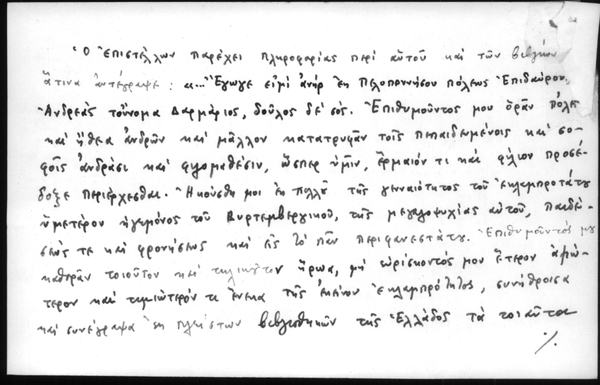 Ὁ ἐπιστέλλων παρέχει πληροφορίας περὶ αὐτοῦ καὶ τῶν βιβλίων
ἅτινα ἀντέγραψε: «...Ἔγωγε εἰμὶ ἀνὴρ ἐκ Πελοποννήσου πόλεως Ἐπιδαύρου.
Ἀνδρέας τοὔνομα Δαρμάριος, δοῦλος δὲ σός. Ἐπιθυμοῦντος μου ὁρᾶν πόλε
καὶ ἤθεα ἀνδρῶν καὶ μᾶλλον κατατρυφᾶν τοῖς πεπαιδευμένοις καὶ σο-
φοῖς ἀνδράσι καὶ φιλομαθέσιν, ὥσπερ ὑμῖν, ἕρμαιόν τι καὶ φίλιον προσέ-
δοξε περιέρχεσθαι. Ἠκούσθη μοι ἐκ πολλοῦ τῆς γενναιότητος τοῦ ἐκλαμπροτάτου
ὑμετέρου ἡγεμόνος τοῦ Βυρτεμβεργικοῦ, τῆς μεγαλοψυχίας αὐτοῦ, παιδεύ-
σεώς τε καὶ φρονήσεως καὶ εἰς τὸ πᾶν περιφανεστάτου. Ἐπιθυμοῦντός μου
καθορᾶν τοιοῦτον καὶ τηλικοῦτον ἥρωα, μὴ εὑρίσκοντός μου ἕτερον ἁρμώ-
τερον καὶ τιμιώτερόν τι ἕνεκα τῆς ἐκείνου ἐκλαμπρότητος, συνήθροισα
καὶ συνέγραψα ἐκ πλείστων βιβλιοθηκῶν τῆς Ἑλλάδος τὰ τοιαῦτα
./.